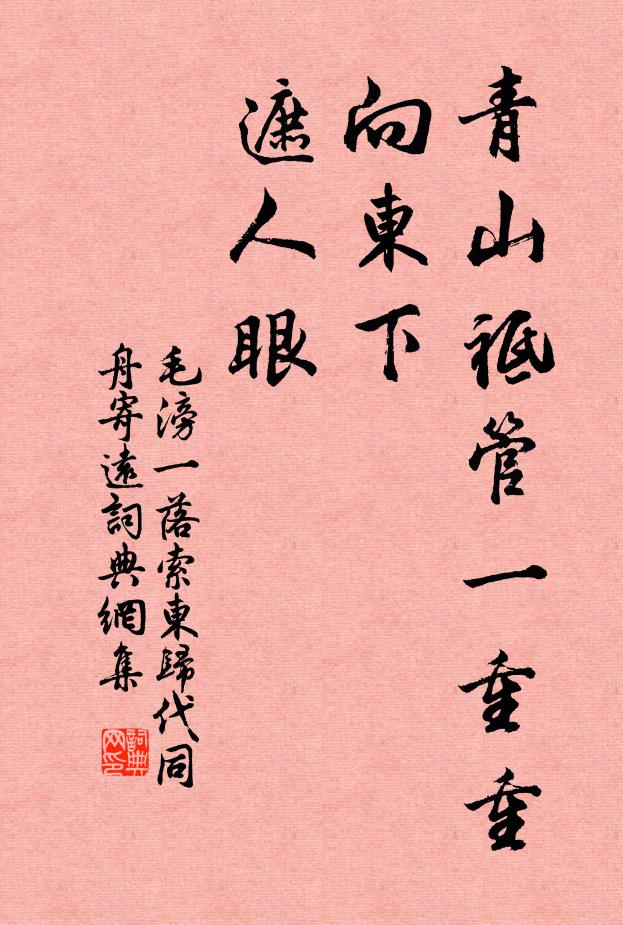 青山祗管一重重
向東下
遮人眼
毛滂一落索東歸代同
舟寄遠詞典網集
詞典网印